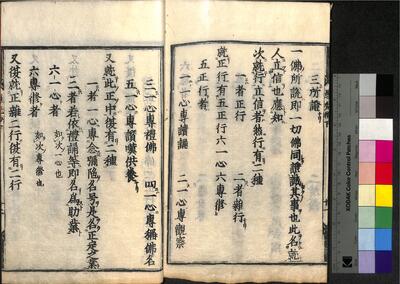 三所證
一佛所說即一切佛同證誠其事也此名就
人立信也應知
次就行立信者然行有二種
一者正行　二者雜行
就正行有五正行六一心六專修
五正行者
一一心專讀誦　二一心專觀察
三一心專禮佛　四一心專稱佛名
五一心專讚嘆供養
又就此正中復有二種
一者一心專念彌陀名号是名正定之業
二者若依禮誦等即名為助業
六一心者
如次一心也
六專修者
如次專修也
又復就正雜二行復有二行
KODAK Color Control Patches